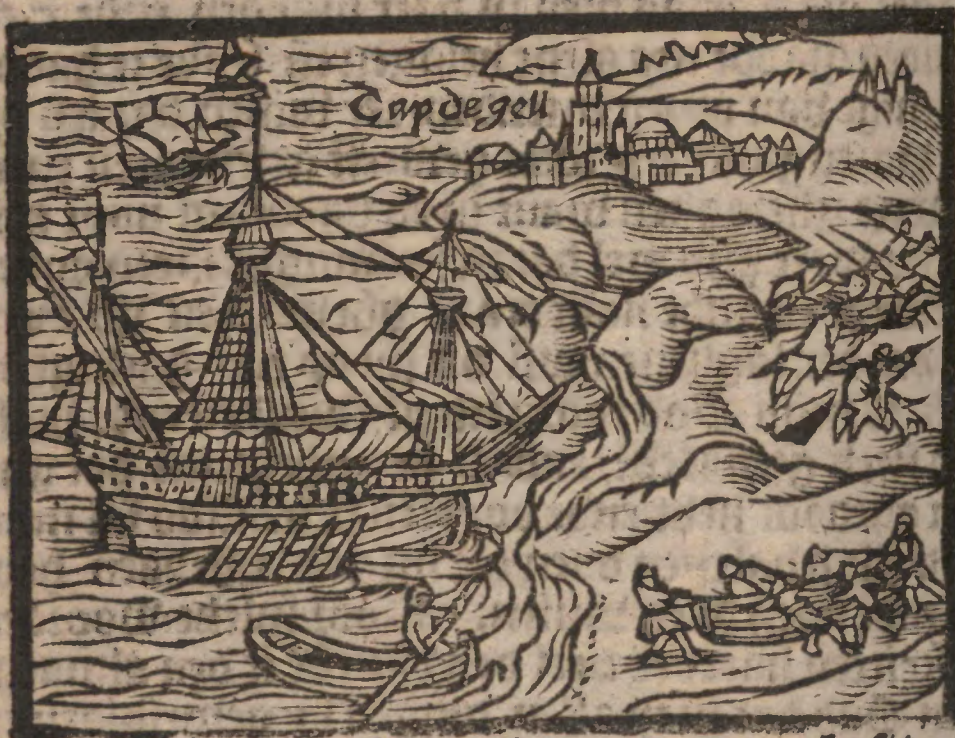 Cap de gell